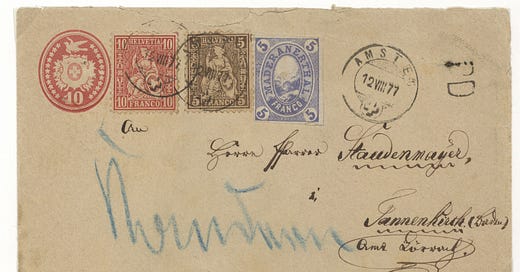 10
10 HELVETIA 10
10 FRANCO 10
5 5
FRANCO
5 5
MADERANERTHAL
5 FRANCO 5
AMSTEG
12 VIII 77
12 VIII 77
PD
An
Herrn Pfarrer Staudenmayer,
i/
Tannenkirch (Baden)
Amt Lörrach.